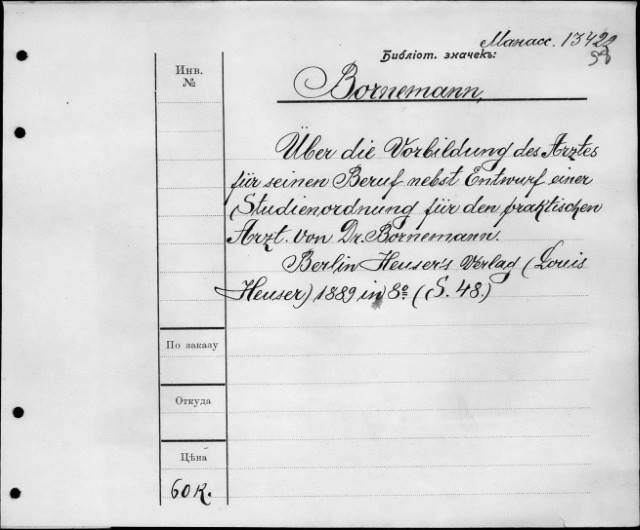 Манасс. 13422
Библіот. значекъ:
Инв.
№
Bornemann,
Über die Vorbildung des Arztes
für seinen Beruf nebst Entwurf einer
Studienordnung für den praktischen
Arzt. von Dr. Bornemann.
Berlin Heuser's Verlag (Louis
Heuser) 1889 in 8º (S. 48.)
По заказу
Откуда
Цѣна
60 к.